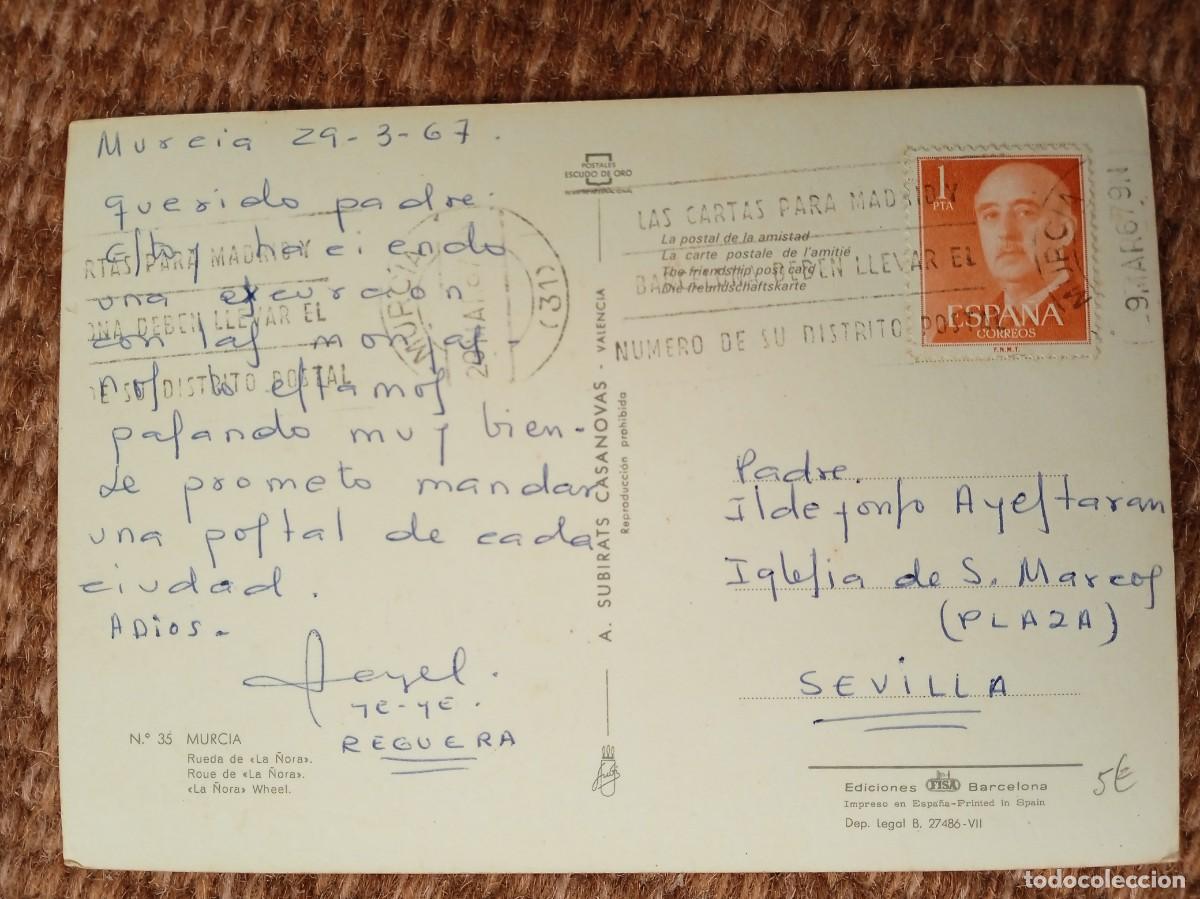 Murcia 29-3-67.
querido padre:
Estoy haciendo
una excursion
con las monjas-
nos lo estamos
pasando muy bien-
Le prometo mandar
una postal de cada
ciudad.
ADIOS-
YE-YE.
REGUERA
N.º 35 MURCIA
Rueda de «La Ñora».
Roue de «La Ñora».
«La Ñora» Wheel.
RTAS PARA MADRID Y
ONA DEBEN LLEVAR EL
DE SU DISTRITO POSTAL
MURCIA
(31)
POSTALES
ESCUDO DE ORO
A. SUBIRATS CASANOVAS - VALENCIA
Reproducción prohibida
LAS CARTAS PARA MADRID Y
BARCELONA DEBEN LLEVAR EL
NUMERO DE SU DISTRITO POSTAL
La postal de la amistad
La carte postale de l'amitié
The friendship post card
Die freundschaftskarte
1
PTA
ESPAÑA
CORREOS
F.N.M.T.
MURCIA
Padre.
Ildefonso Ayestaran
Iglesia de S. Marcos
(PLAZA)
SEVILLA
Ediciones FISA Barcelona
Impreso en España-Printed in Spain
Dep. Legal B. 27486-VII
5€
todocoleccion